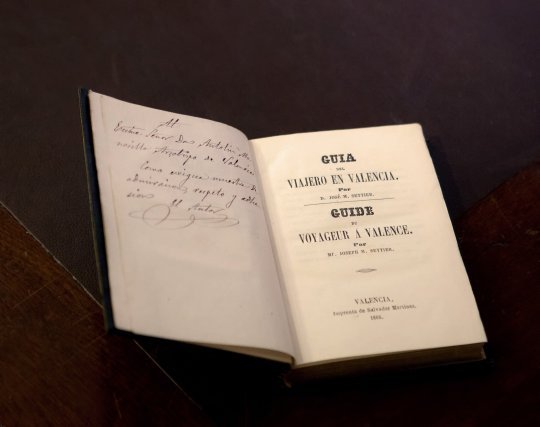 Al
Excmo. Señor Don Antolin Mo-
nescillo Arzobispo de Valencia
Como exigua muestra de
admiracion respeto y adhe-
sion
El Autor
GUIA
DEL
VIAJERO EN VALENCIA.
Por
D. JOSÉ M. SETTIER.
GUIDE
DU
VOYAGEUR A VALENCE.
Par
Mr. JOSEPH M. SETTIER.
VALENCIA,
Imprenta de Salvador Martinez,